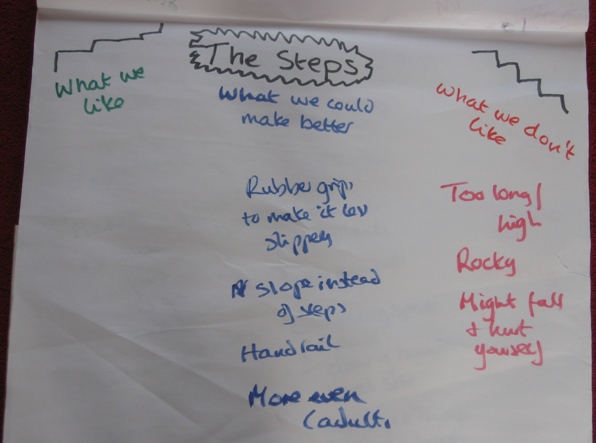 The Steps
What we
like
What we could
make better
Rubber grips
to make it less
slippery
A slope instead
of steps
Handrail
More even
(adult)
What we don't
like
Too long/
high
Rocky
Might fall
& hurt
yourself